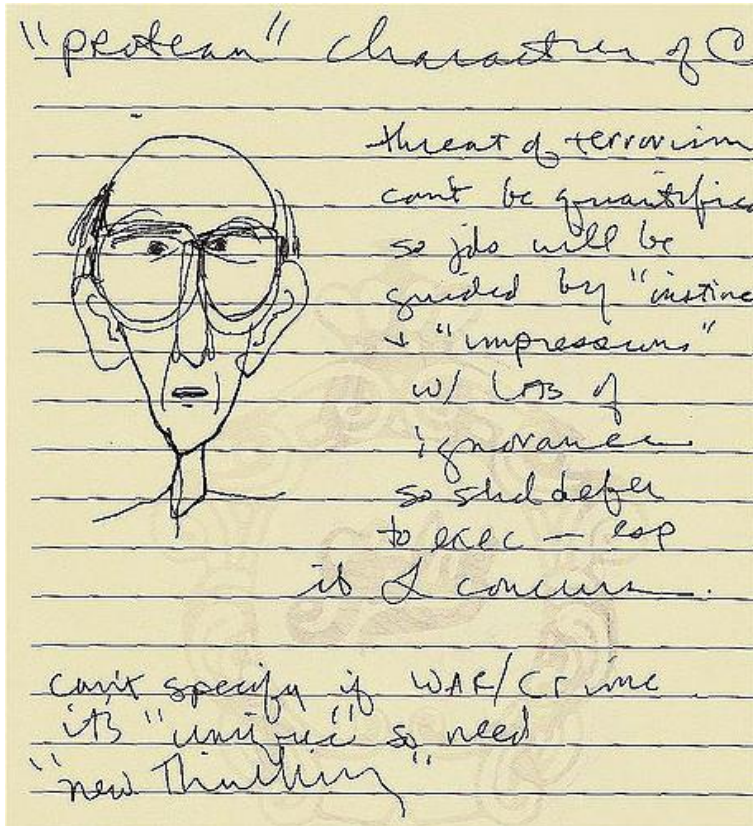 "protean" character of C
threat of terrorism
can't be quantific
so jds will be
guided by "instinc
+ "impressions"
w/ LAB of
ignorance
so shd defer
to exec — esp
if L concurs.
can't specify if WAR/Crime
it's "unique" so need
"new Thinking"